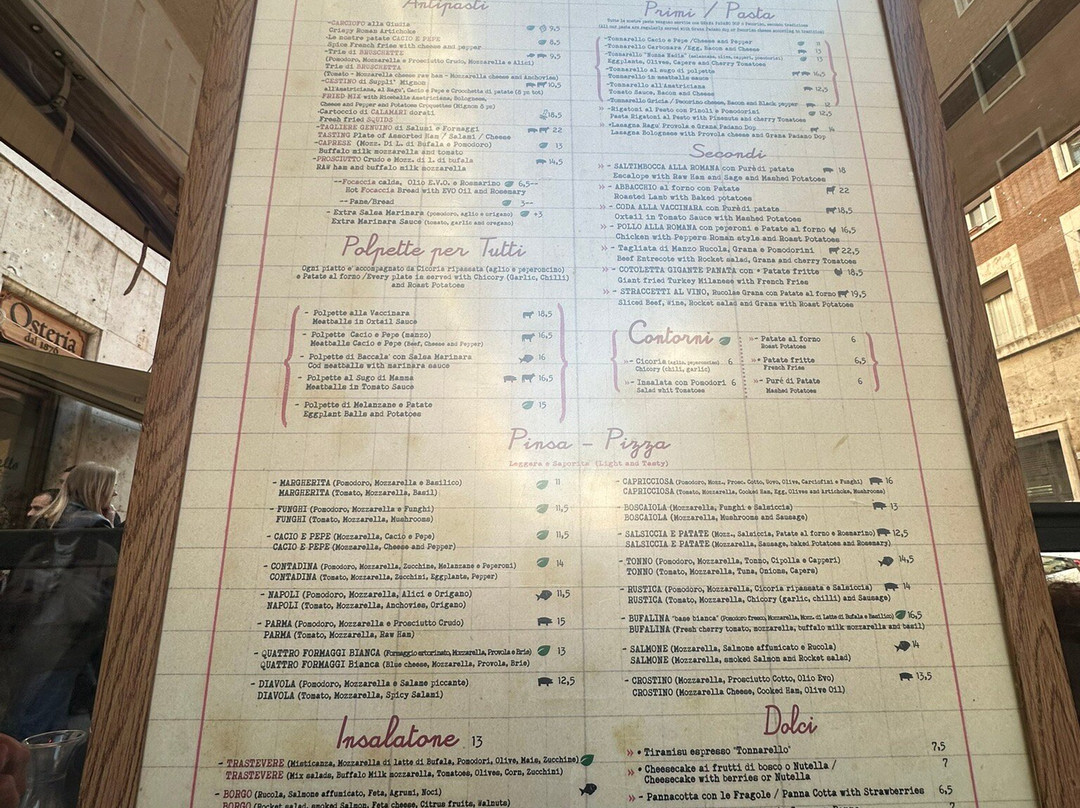 Osteria
dal 1870
Antipasti
-CARCIOFO alla Giudia
Crispy Roman Artichoke 9,5
-Le nostre patate CACIO E PEPE
Spice French fries with cheese and pepper 8,5
-Tris di BRUSCHETTE 9,5
(Pomodoro, Mozzarella e Prosciutto Crudo, Mozzarella e Alici)
Tris di BRUSCHETTA
(Tomato - Mozzarella cheese raw ham - Mozzarella cheese and Anchovies)
-CESTINO di Suppli' Mignon 10,5
all'Amatriciana, al Ragu', Cacio e Pepe e Crocchetta di patate (8 pz tot)
FRIED MIX with Riceballs Amatriciana, Bolognese,
Cheese and Pepper and Potatoes Croquettes (Mignon 8 ps)
Cartoccio di CALAMARI dorati 18,5
Fresh fried SQUIDS
-TAGLIERE GENUINO di Salumi e Formaggi 22
TASTING Plate of Assorted Ham / Salami / Cheese
-CAPRESE (Mozz. Di L. di Bufala e Pomodoro) 13
Buffalo milk mozzarella and tomato
-PROSCIUTTO Crudo e Mozz. di L. di bufala 14,5
RAW ham and buffalo milk mozzarella
--Focaccia calda, Olio E.V.O. e Rosmarino 6,5--
Hot Focaccia Bread with EVO Oil and Rosemary
--Pane/Bread 3--
- Extra Salsa Marinara (pomodoro, aglio e origano) +3
Extra Marinara Sauce (tomato, garlic and oregano)
Polpette per Tutti
Ogni piatto e' accompagnato da Cicoria ripassata (aglio e peperoncino)
e Patate al forno /Every plate is served with Chicory (Garlic, Chilli)
and Roast Potatoes
- Polpette alla Vaccinara 18,5
Meatballs in Oxtail Sauce
- Polpette Cacio e Pepe (manzo) 16,5
Meatballs Cacio e Pepe (Beef, Cheese and Pepper)
- Polpette di Baccala' con Salsa Marinara 16
Cod meatballs with marinara sauce
- Polpette al Sugo di Mamma 16,5
Meatballs in Tomato Sauce
- Polpette di Melanzane e Patate 15
Eggplant Balls and Potatoes
Primi / Pasta
-Tonnarello Cacio e Pepe /Cheese and Pepper 11
-Tonnarello Carbonara /Egg, Bacon and Cheese 13
-Tonnarello "Nonna Nadia" (melanzane, olive, capperi, pomodorini) 13
Eggplants, Olives, Capers and Cherry Tomatoes
-Tonnarello al sugo di polpette 14,5
Tonnarello in meatballs sauce
-Tonnarello all'Amatriciana 12,5
Tomato Sauce, Bacon and Cheese
-Tonnarello Gricia / Pecorino cheese, Bacon and Black pepper 12
- Rigatoni al Pesto con Pinoli e Pomodorini 12,5
Pasta Rigatoni al Pesto with Pinenuts and cherry Tomatoes
•Lasagna Ragu' Provola e Grana Padano Dop 14
Lasagna Bolognese with Provola cheese and Grana Padano Dop
Secondi
» - SALTIMBOCCA ALLA ROMANA con Purè di patate 18
Escalope with Raw Ham and Sage and Mashed Potatoes
» - ABBACCHIO al forno con Patate 22
Roasted Lamb with Baked potatoes
» - CODA ALLA VACCINARA con Purè di patate 18,5
Oxtail in Tomato Sauce with Mashed Potatoes
» - POLLO ALLA ROMANA con peperoni e Patate al forno 16,5
Chicken with Peppers Roman style and Roast Potatoes
» - Tagliata di Manzo Rucola, Grana e Pomodorini 22,5
Beef Entrecote with Rocket salad, Grana and cherry Tomatoes
» - COTOLETTA GIGANTE PANATA con • Patate fritte 18,5
Giant fried Turkey Milanese with French Fries
» - STRACCETTI AL VINO, Rucola e Grana con Patate al forno 19,5
Sliced Beef, Wine, Rocket salad and Grana with Roast Potatoes
Contorni
»- Cicoria (aglio, peperoncino) 6
Chicory (chili, garlic)
»- Insalata con Pomodori 6
Salad whit Tomatoes
»- Patate al forno 6
Roast Potatoes
»• Patate fritte 6,5
French Fries
»- Purè di Patate 6
Mashed Potatoes
Pinsa - Pizza
Leggera e Saporita (Light and Tasty)
- MARGHERITA (Pomodoro, Mozzarella e Basilico) 11
MARGHERITA (Tomato, Mozzarella, Basil)
- FUNGHI (Pomodoro, Mozzarella e Funghi) 11,5
FUNGHI (Tomato, Mozzarella, Mushrooms)
- CACIO E PEPE (Mozzarella, Cacio e Pepe) 11,5
CACIO E PEPE (Mozzarella, Cheese and Pepper)
- CONTADINA (Pomodoro, Mozzarella, Zucchine, Melanzane e Peperoni) 14
CONTADINA (Tomato, Mozzarella, Zucchini, Eggplant, Pepper)
- NAPOLI (Pomodoro, Mozzarella, Alici e Origano) 11,5
NAPOLI (Tomato, Mozzarella, Anchovies, Origano)
- PARMA (Pomodoro, Mozzarella e Prosciutto Crudo) 15
PARMA (Tomato, Mozzarella, Raw Ham)
- QUATTRO FORMAGGI BIANCA (Formaggio erborinato, Mozzarella, Provola e Brie) 13
QUATTRO FORMAGGI Bianca (Blue cheese, Mozzarella, Provola, Brie)
- DIAVOLA (Pomodoro, Mozzarella e Salame piccante) 12,5
DIAVOLA (Tomato, Mozzarella, Spicy Salami)
- CAPRICCIOSA (Pomodoro, Mozz., Prosc. Cotto, Uovo, Olive, Carciofini e Funghi) 16
CAPRICCIOSA (Tomato, Mozzarella, Cooked Ham, Egg, Olives and Artichoke, Mushrooms)
- BOSCAIOLA (Mozzarella, Funghi e Salsiccia) 13
BOSCAIOLA (Mozzarella, Mushrooms and Sausage)
- SALSICCIA E PATATE (Mozz., Salsiccia, Patate al forno e Rosmarino) 12,5
SALSICCIA E PATATE (Mozzarella, Sausage, baked Potatoes and Rosemary)
- TONNO (Pomodoro, Mozzarella, Tonno, Cipolla e Capperi) 14,5
TONNO (Tomato, Mozzarella, Tuna, Onions, Capers)
- RUSTICA (Pomodoro, Mozzarella, Cicoria ripassata e Salsiccia) 14
RUSTICA (Tomato, Mozzarella, Chicory (garlic, chilli) and Sausage)
- BUFALINA "base bianca" (Pomodoro fresco, Mozzarella, Mozz. di Latte di Bufala e Basilico) 16,5
BUFALINA (Fresh cherry tomato, mozzarella, buffalo milk mozzarella and basil)
- SALMONE (Mozzarella, Salmone affumicato e Rucola) 14
SALMONE (Mozzarella, smoked Salmon and Rocket salad)
- CROSTINO (Mozzarella, Prosciutto Cotto, Olio Evo) 13,5
CROSTINO (Mozzarella Cheese, Cooked Ham, Olive Oil)
Insalatone 13
- TRASTEVERE (Misticanza, Mozzarella di latte di Bufala, Pomodori, Olive, Mais, Zucchine)
TRASTEVERE (Mix salads, Buffalo Milk mozzarella, Tomatoes, Olives, Corn, Zucchini)
- BORGO (Rucola, Salmone affumicato, Feta, Agrumi, Noci)
BORGO (Rocket salad, smoked Salmon, Feta cheese, Citrus fruits, Walnuts)
Dolci
» • Tiramisu espresso 'Tonnarello' 7,5
» • Cheesecake ai frutti di bosco o Nutella / 7
Cheesecake with berries or Nutella
» - Pannacotta con le Fragole / Panna Cotta with Strawberries 6,5